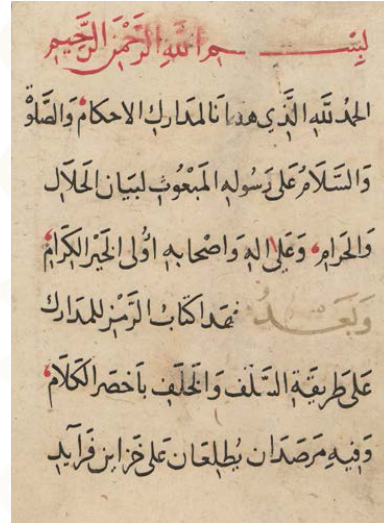 بِسْـــــــمِ اللهِ الرَّحْمٰنِ الرَّحِيْمِ
الحمدُ لله الَّذِي هدانَا لمدارك الاحكام وَالصَّلوٰة
وَالسَّلَامُ عَلى رَسُولهِ المَبْعُوثِ لبَيان الحَلال
وَالحَرامِ وَعَلى الهِ وَاصْحابهِ اوُلى الخَيْر الكِرَامْ
وَبَعْـــدُ فهَذا كتابُ الرَّمْز للمدَارك
عَلى طَريقَةِ السَّلَف وَالخَلَفِ بأخصَر الكَلَام
وَفيهِ مَرصَدَان يُطْلِعَان عَلى خَزاين فَرآيد